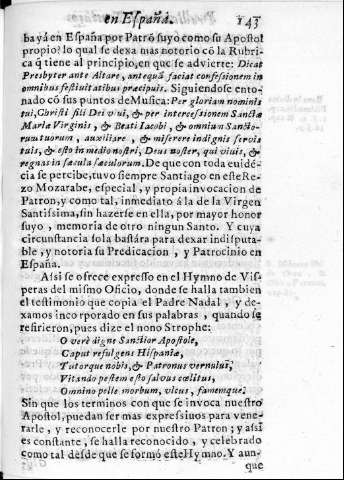 en España. 143
bayá en España por Patrõ suyo como su Apostol
propio? lo qual se dexa mas notorio cõ la Rubri-
ca q̃ tiene al principio, en que se advierte: Dicat
Presbyter ante Altare, antequã faciat confessionem in
omnibus festivitatibus præcipuis. Siguiendose ento-
nado cõ sus puntos de Musica: Per gloriam nominis
tui, Christi fili Dei vivi, & per intercessionem Sanctæ
Mariæ Virginis, & Beati Iacobi, & omnium Sancto-
ruu tuorum, auxiliare, & miserere indignis servis
tuis, & esto in medio nostri, Deus noster, qui vivis, &
regnas in sæcula sæculorum. De que con toda euidē-
cia se percibe, tuvo siempre Santiago en este Re-
zo Mozarabe, especial, y propia invocacion de
Patron, y como tal, inmediato á la de la Virgen
Santissima, sin hazerse en ella, por mayor honor
suyo, memoria de otro ningun Santo. Y cuya
circunstancia sola bastára para dexar indisputa-
ble, y notoria su Predicacion, y Patrocinio en
España.
Assi se ofrece expresso en el Hymno de Vis-
peras del mismo Oficio, donde se halla tambien
el testimonio que copia el Padre Nadal, y de-
xamos incorporado en sus palabras, quando se
refirieron, pues dize el nono Strophe:
O verè digne Sanctior Apostole,
Caput refulgens Hispaniæ,
Tutorque nobis, & Patronus vernulus,
Vitando pestem esto salvus cœlitus,
Omnino pelle morbum, vlcus, famemque.
Sin que los terminos con que se invoca nuestro
Apostol, puedan ser mas expressivos para vene-
rarle, y reconocerle por nuestro Patron; y assi
es constante, se halla reconocido, y celebrado
como tal desde que se formó este Hymno. Y aun-
que